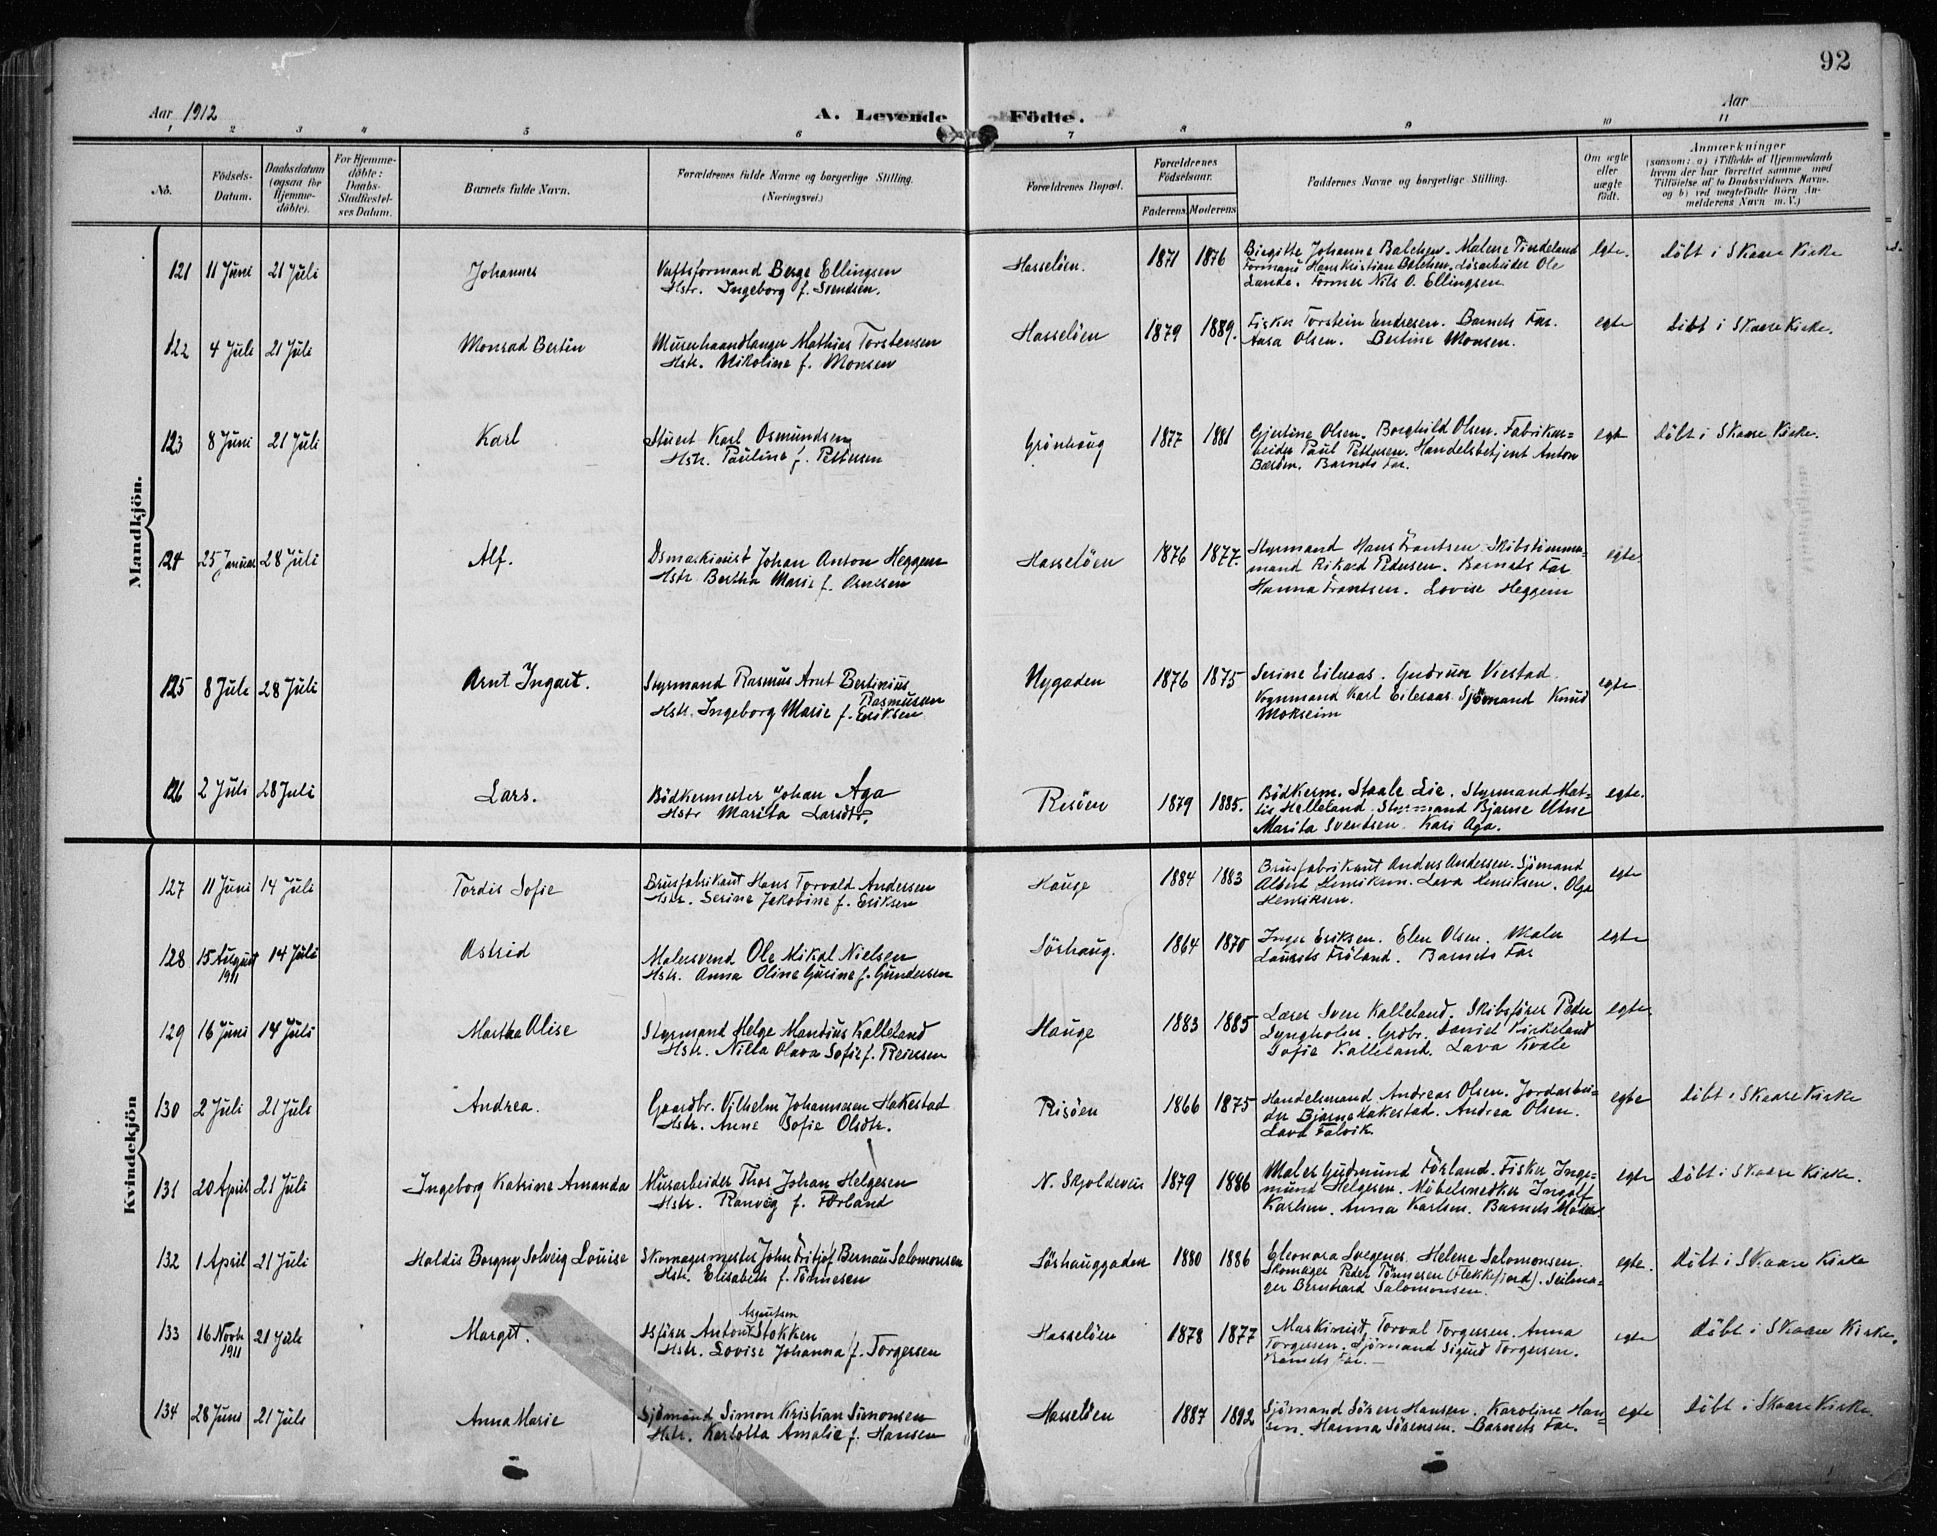 92
Aar 1912
A. Levende Födte.
Aar
1 2 3 4 5 6 7 8 9 10 11
No.
Födsels-
Datum.
Daabsdatum
(ogsaa for
Hjemme-
döbte).
For Hjemme-
döbte:
Daabs-
Stadfæstel-
ses Datum.
Barnets fulde Navn.
Forældrenes fulde Navne og borgerlige Stilling.
(Næringsvei.)
Forældrenes Bopæl.
Forældrenes
Födselsaar.
Faderens Moderens
Faddernes Navne og borgerlige Stilling.
Om ægte
eller
uægte
födt.
Anmærkninger
(saasom: a) i Tilfælde af Hjemmedaab
hvem der har forrettet samme, med
Tilföielse af to Daabsvidners Navne,
og b) ved uægtefödte Börn An-
melderens Navn m. V.)
Mandkjön.
121 11 Juni 21 Juli Johannes
Vaftsformand Berge Ellingsen
Hstr. Ingeborg f. Svendsen.
Hasselöen. 1871 1876
Birgitte Johanne Balchen. Malene Tindeland
Formand Hans Kristian Balchen. Lösarbeider Ole
Lande. Former Nils O. Ellingsen
egte. Döbt i Skaare Kirke
122 4 Juli 21 Juli Monrad Bertin
Murerhaandlanger Mathias Torstensen
Hstr. Nikoline f. Monsen
Hasselöen 1879 1889.
Fisker Torstein Endresen. Barnets Far.
Aasa Olsen. Bertine Monsen.
egte Döbt i Skaare Kirke.
123 8 Juni 21 Juli Karl
Stuert Karl Osmundsen
Hstr. Pauline f. Pettersen
Grönhaug 1877 1881
Gjertine Olsen. Borghild Olsen. Fabrikar=
beider Paul Pettersen. Handelsbetjent Anton
Bærsen. Barnets Far.
egte Döbt i Skaare Kirke.
124 25 Januar 28 Juli Alf.
Dsmaskinist Johan Anton Heggem
Hstr. Bertha Marie f. Arnesen
Hasselöen 1876 1877.
Styrmand Hans Frantsen. Skibstömmer-
mand Rikard Pedersen. Barnets Far
Hanna Frantsen. Lovise Heggem
egte.
125 8 Juli 28 Juli Arnt Ingart.
Styrmand Rasmus Arnt Bertinius
Rasmussen
Hstr. Ingeborg Marie f. Eriksen
Nygaden 1876 1875
Serine Eileraas. Gudrun Viestad.
Vognmand Karl Eileraas. Sjömand Knud
Mokseim
egte
126 2 Juli 28 Juli Lars.
Bödkermester Johan Aga
Hstr Marita Larsdtr.
Risöen 1879 1885.
Bödkerm. Staale Lie. Styrmand Mat-
tis Helleland. Styrmand Bjarne Utne
Marita Svendsen. Kari Aga.
egte.
Kvindekjön
127 11 Juni 14 Juli Tordis Sofie
Brusfabrikant Hans Torvald Andersen
Hstr. Serine Jakobine f. Eriksen
Hauge 1884 1883
Brusfabrikant Anders Andersen. Sjömand
Albert Henriksen. Lava Henriksen. Olga
Henriksen.
egte
128 15 August 14 Juli Astrid
1911
Malersvend Ole Mikal Nielsen
Hstr. Anna Oline Gurine f. Gundersen
Sörhaug. 1864 1870
Inger Eriksen. Elen Olsen. Maler
Laurets Fröland. Barnets Far
egte
129 16 Juni 14 Juli Martha Alise
Styrmand Helge Mandius Kalleland
Hstr. Nilla Olava Sofie f. Reiersen
Hauge 1883 1885
Lærer Sven Kalleland. Skibsförer Peder
Lyngholm. Grdbr. Daniel Kirkeland
Sofie Kalleland. Lava Kvale
egte
130 2 Juli 21 Juli Andrea.
Gaardbr. Vilhelm Johannesen Hakestad
Hstr. Anne Sofie Olsdtr.
Risöen 1866 1875
Handelsmand Andreas Olsen. Jordarbei-
der Bjarne Hakestad. Andrea Olsen.
Lava Falvik.
egte Döbt i Skaare Kirke
131 20 April 21 Juli Ingeborg Katrine Amanda
Murarbeider Thor Johan Helgesen
Hstr. Ranveg f.Förland
N. Skjoldevei 1879 1886
Maler Gudmund Förland. Fisker Inge-
mund Helgesen. Möbelsnedker Ingolf
Karlsen. Anna Karlsen. Barnets Moder.
egte Döbt i Skaare Kirke.
132 1 April 21 Juli Haldis Borgny Solveig Louise
Skomagermester John Fritjof Bernau Salomonsen
Hstr. Elisabeth f. Tönnesen
Sörhauggaden 1880 1886
Eleonora Svegenes. Helene Salomonsen.
Skomager Peder Tönnesen (Flekkefjord). Seilma-
ger Bernhard Salomonsen.
egte. Döbt i Skaare Kirke
133 16 Novb 21 Juli Marget.
1911
Asgautsen
Dsförer Anton Stokken
Hstr. Lovise Johanna f. Torgersen
Hasselöen 1878 1877
Maskinist Torval Torgersen. Anna
Torgersen. Sjömand Sigurd Torgersen.
Barnets Far.
egte Döbt i Skaare Kirke.
134 28 Juni 21 Juli Anna Marie
Sjömand Simon Kristian Simonsen
Hstr. Karlotta Amalie f. Hansen
Hasselöen 1887 1892
Sjömand Sören Hansen. Karoline Han-
sen. Hanna Sörensen. Barnets Far.
egte Döbt i Skaare Kirke.